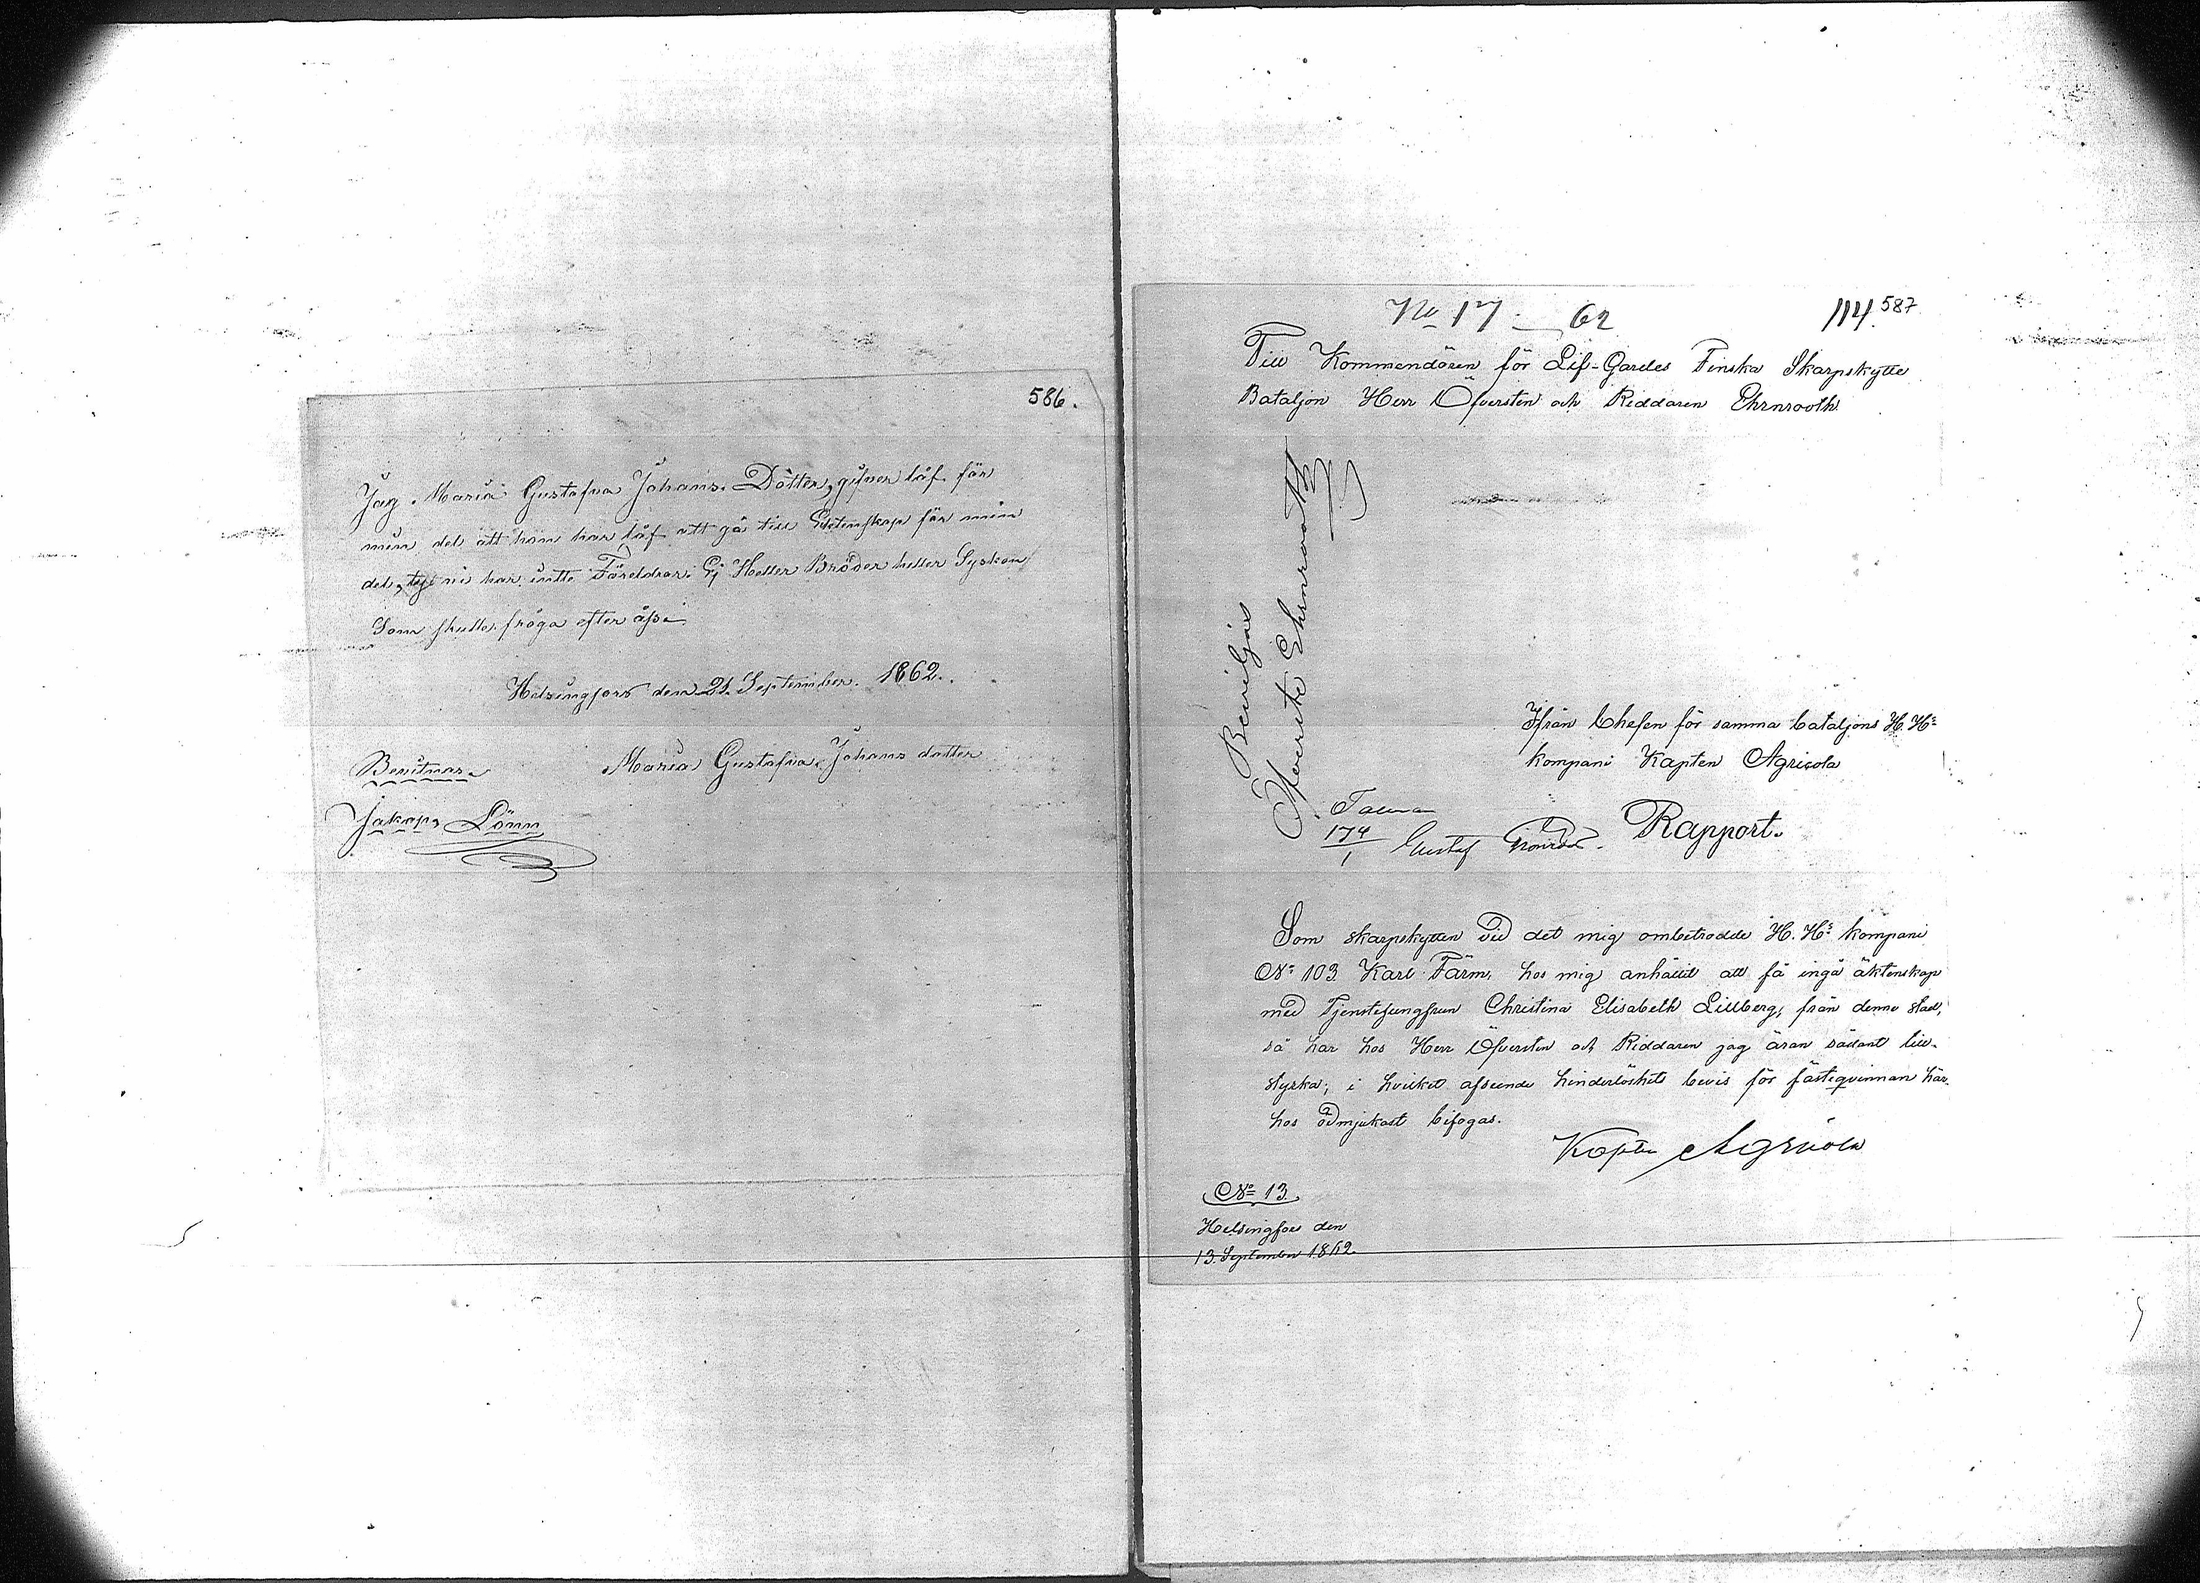 586.
Jag Maria Gustafva Johans Dotter, gifver låf får
min del att han har låf att gå till Ektenskap får min
del, ty vi har intte Föreldrar Ej Heller Bröder heller Syskon
Som skulle fröga efter åss
Helsingfors den 21 September. 1862.
Maria Gustafva Johans dotter
Bevitnar
Jakop Lönn
No 17 62
114. 587
Till Kommendören för Lif-Gardes Finska Skarpskytte
Bataljon Herr Öfversten och Riddaren Ehrnrooth
Beviljas
Öfverste Ehrnrooth
Ifrån Chefen för samma bataljons H. H:s
kompani Kapten Agricola
174
1
Gustaf
Rapport.
Som skarpskytten vid det mig ombetrodde H. H:s kompani
No 103 Karl Färm, hos mig anhållit att få ingå äktenskap
med Tjenstejungfrun Christina Elisabeth Lillberg, från denne stad,
så har hos Herr Öfversten och Riddaren jag äran sådant till-
styrka; i hvilket afseende hinderlöshets bevis för fästeqvinnan här-
hos ödmjukast bifogas.
Kapten Agricola
No 13.
Helsingfors den
13 September 1862.